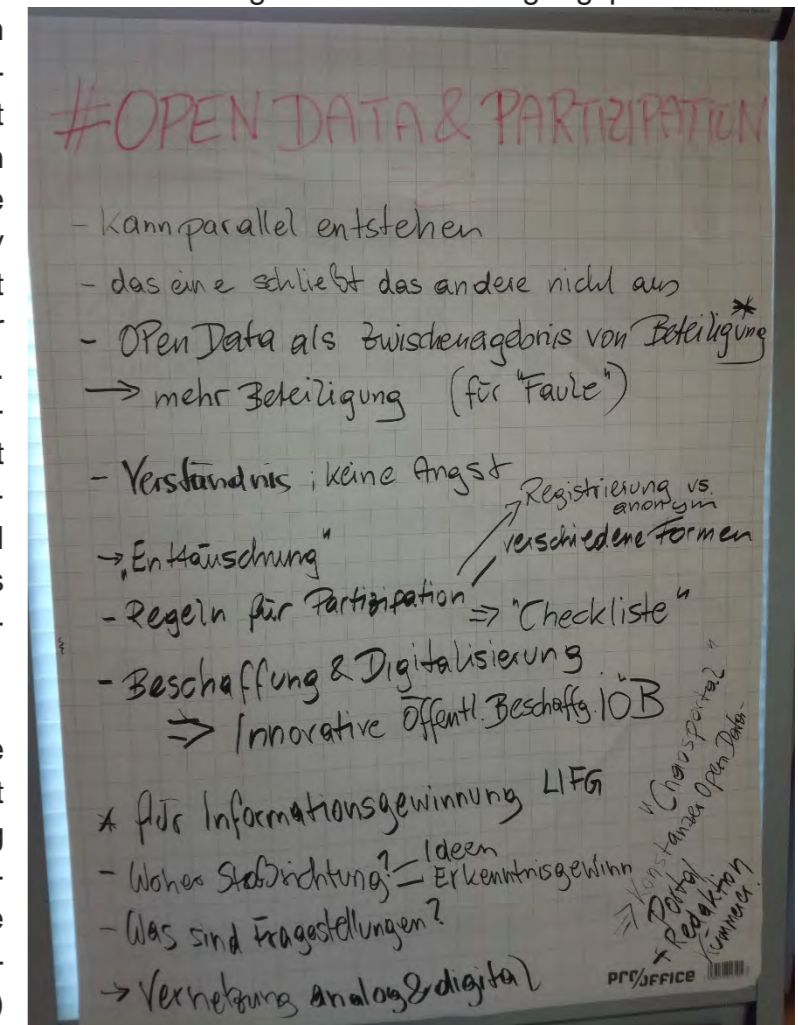 #OPEN DATA & PARTIZIPATION
- Kann parallel entstehen
- das eine schließt das andere nicht aus
- OPen Data als Zwischenergebnis von Beteiligung *
→ mehr Beteiligung (für "Faule")
- Verständnis; keine Angst
Registrierung vs. anonym
verschiedene Formen
→ „Enttäuschung"
- Regeln für Partizipation ⇒ "Checkliste"
- Beschaffung & Digitalisierung
⇒ Innovative Öffentl. Beschaffg. IÖB
* für Informationsgewinnung LIFG
- Woher Stoßrichtung? - Ideen
- Erkenntnisgewinn
- Was sind Fragestellungen?
→ Vernetzung analog & digital
"Chaosportal"
⇒ Konstanzer Open Data-
Portal
* Redaktion
Kümmerer!
PRO/OFFICE